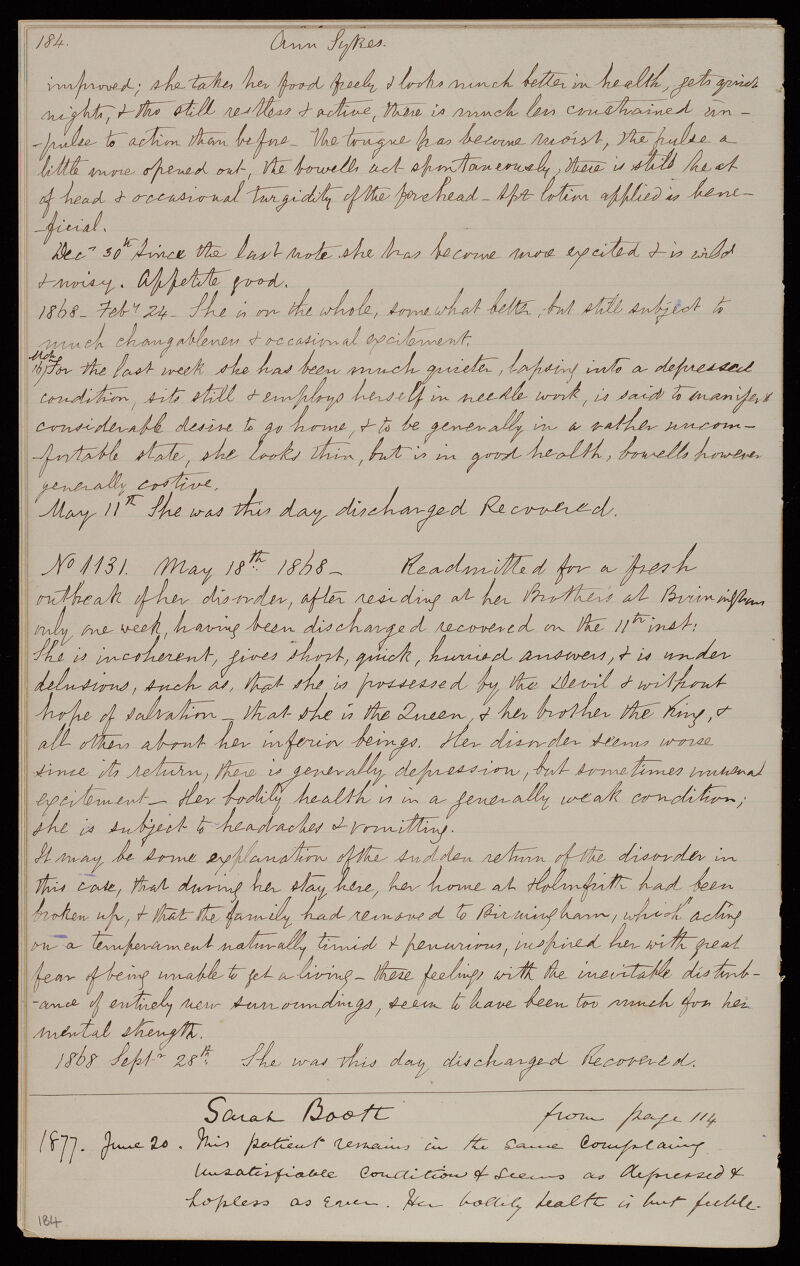 184. Ann Sykes.
improved; she takes her food freely & looks much better in health, gets quiet
nights, & tho still restless & active, there is much less constrained im-
-pulse to action than before - The tongue has become moist, the pulse a
little more opened out, the bowells act spontaneously, there is still heat
of head & occasional turgidity of the forehead - Spt lotion applied is bene-
-ficial.
Decr 30th Since the last note she has become more excited & is wild
& noisy. Appetite good.
1868 - Feby 24 - She is on the whole, somewhat better, but still subject to
much changableness & occasional excitement.
Mch
16) For the last week she has been much quieter, lapsing into a depressed
condition, sits still & employs herself in needle work, is said to manifest
considerable desire to go home, & to be generally in a rather uncom-
-fortable state, she looks thin, but is in good health, bowells however
generally costive.
May 11th She was this day discharged Recovered.
No 1131. May 18th 1868 - Readmitted for a fresh
outbreak of her disorder, after residing at her Brothers at Birmingham
only one week, having been discharged recovered on the 11th inst:
She is incoherent, gives short, quick, hurried answers, & is under
delusions, such as, that she is possessed by the Devil & without
hope of salvation - that she is the Queen, & her brother the King, &
all others about her inferior beings. Her disorder seems worse
since its return, there is generally depression, but sometimes unusual
excitement - Her bodily health is in a generally weak condition;
she is subject to headaches & vomitting.
It may be some explanation of the sudden return of the disorder in
this case, that during her stay here, her home at Holmfirth had been
broken up, & that the family had removed to Birmingham, which acting
on a temperament naturally timid & penurious, inspired her with great
fear of being unable to get a living - these feelings with the inevitable disturb-
-ance of entirely new surroundings, seem to have been too much for her
mental strength.
1868 Septr 28th. She was this day discharged Recovered.
Sarah Booth from page 114
1877. June 20. This patient remains in the same Complaining
unsatisfiable Condition & seems as depressed &
hopless as ever. Her bodily health is but feeble.
184